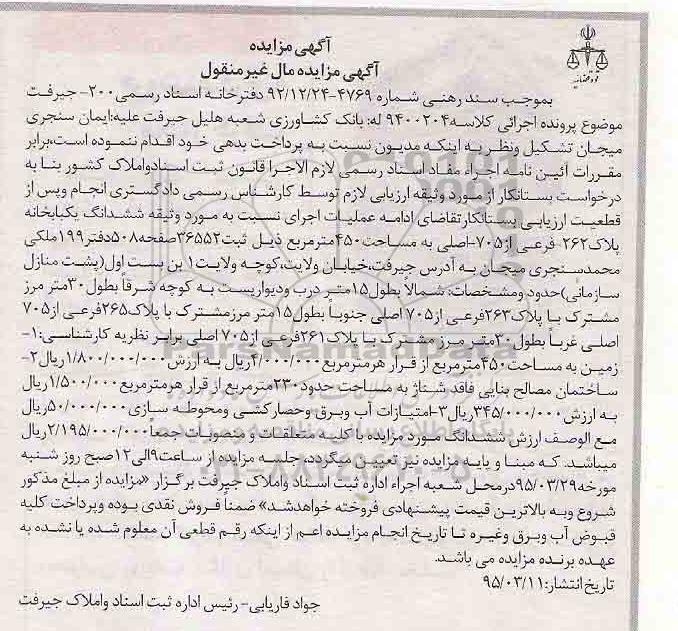 آگهی مزایده
آگهی مزایده مال غیرمنقول
بموجب سند رهنی شماره ۴۷۶۹-۹۲/۱۲/۲۴ دفترخانه اسناد رسمی ۲۰۰- جیرفت
موضوع پرونده اجرائی کلاسه ۹۴۰۰۲۰۴ له: بانک کشاورزی شعبه هلیل جیرفت علیه: ایمان سنجری
میجان تشکیل ونظر به اینکه مدیون نسبت به پرداخت بدهی خود اقدام ننموده است، برابر
مقررات ائین نامه اجراء مفاد اسناد رسمی لازم الاجرا قانون ثبت اسنادواملاک کشور بنا به
درخواست بستانکار از مورد وثیقه ارزیابی لازم توسط کارشناس رسمی دادگستری انجام وپس از
قطعیت ارزیابی بستانکارتقاضای ادامه عملیات اجرای نسبت به مورد وثیقه ششدانگ یکبابخانه
پلاک ۲۶۲ فرعی از ۷۰۵-اصلی به مساحت ۴۵۰مترمربع ذیل ثبت ۳۶۵۵۲صفحه ۵۰۸دفتر ۱۹۹ملکی
محمدسنجری میجان به آدرس جیرفت،خیابان ولایت،کوچه ولایت ۱ بن بست اول(پشت منازل
سازمانی)حدود ومشخصات: شمالاً بطول ۱۵متر درب ودیواریست به کوچه شرقاً بطول ۳۰متر مرز
مشترک با پلاک ۲۶۳فرعی از ۷۰۵ اصلی جنوباً بطول ۱۵متر مرزمشترک با پلاک ۲۶۵فرعی از ۷۰۵
اصلی غرباً بطول ۳۰متر مرز مشترک با پلاک ۲۶۱فرعی از ۷۰۵ اصلی برابر نظریه کارشناسی: ۱-
زمین به مساحت ۴۵۰مترمربع از قرار هرمترمربع ۴/۰۰۰/۰۰۰ریال به ارزش ۱/۸۰۰/۰۰۰/۰۰۰ریال ۲-
ساختمان مصالح بنایی فاقد شناژ به مساحت حدود ۲۳۰مترمربع از قرار هرمترمربع ۱/۵۰۰/۰۰۰ریال
به ارزش ۳۴۵/۰۰۰/۰۰۰ریال ۳-امتیازات آب وبرق وحصارکشی ومحوطه سازی ۵۰/۰۰۰/۰۰۰ریال
مع الوصف ارزش ششدانگ مورد مزایده با کلیه متعلقات و منصوبات جمعا ۲/۱۹۵/۰۰۰/۰۰۰ریال
میباشد. که مبنا و پایه مزایده نیز تعیین میگردد، جلسه مزایده از ساعت ۹الی ۱۲صبح روز شنبه
مورخه ۹۵/۰۳/۲۹درمحل شعبه اجراء اداره ثبت اسناد واملاک جیرفت برگزار «مزایده از مبلغ مذکور
شروع وبه بالاترین قیمت پیشنهادی فروخته خواهدشد» ضمناً فروش نقدی بوده وپرداخت کلیه
قبوض آب وبرق وغیره تا تاریخ انجام مزایده اعم از اینکه رقم قطعی آن معلوم شده یا نشده به
عهده برنده مزایده می باشد.
تاریخ انتشار: ۹۵/۰۳/۱۱
جواد فاریابی- رئیس اداره ثبت اسناد واملاک جیرفت